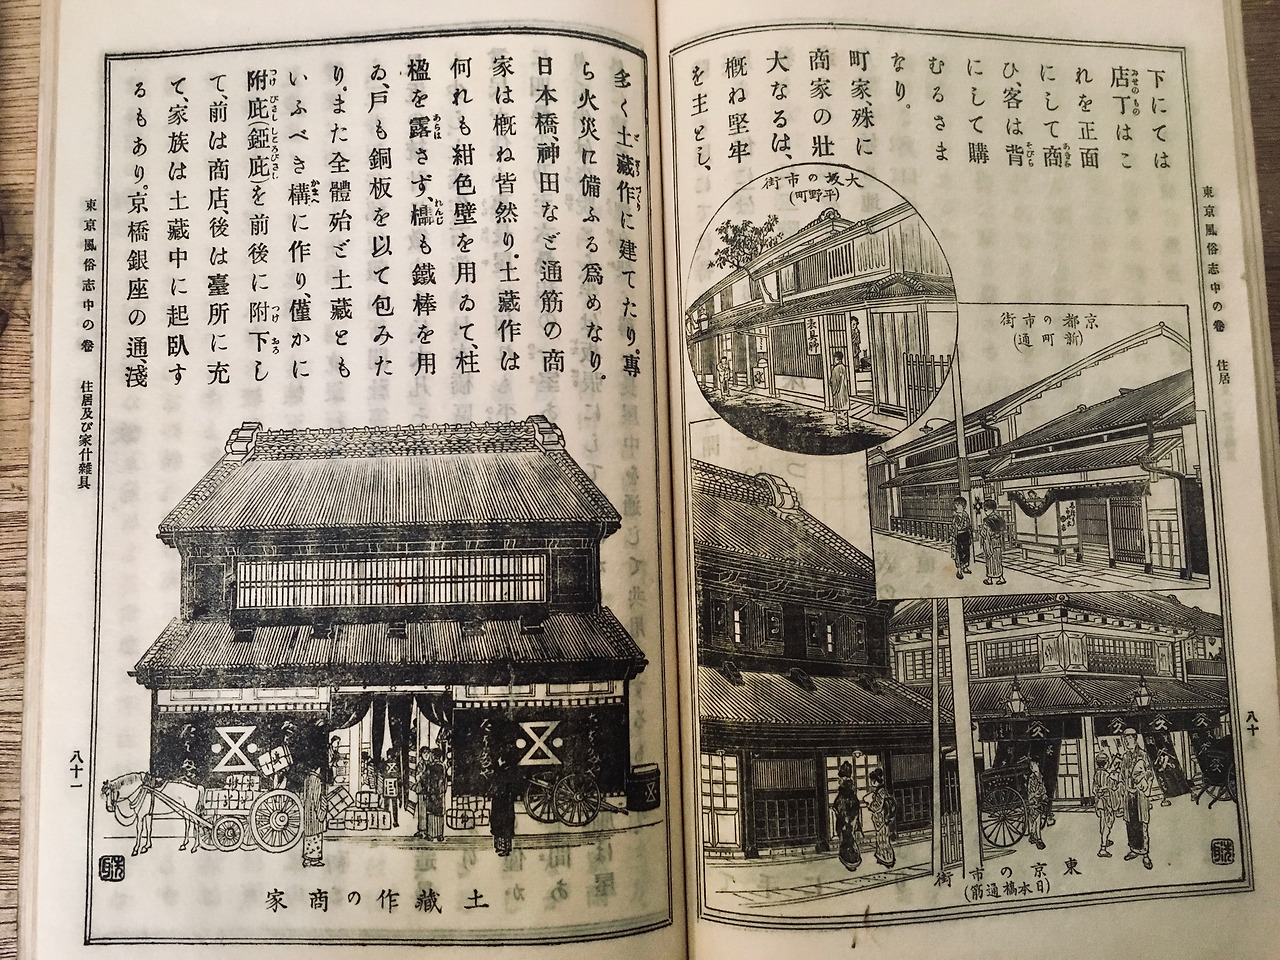 東京風俗志中の卷　住居
八十
下にては
店丁はこ
れを正面
にして商
ひ、客は背
にして購
むるさま
なり。
町家、殊に
商家の壯
大なるは、
概ね堅牢
を主とし、
大坂の市街
(平野町)
京都の市街
(新町通)
東京の市街
(日本橋通筋)
多く土藏作に建てたり。專
ら火災に備ふる爲めなり。
日本橋、神田など通筋の商
家は概ね皆然り。土藏作は
何れも紺色壁を用ゐて、柱
楹を露さず、櫺も鐵棒を用
ゐ、戸も銅板を以て包みた
り。また全體殆ど土藏とも
いふべき構に作り、僅かに
附庇(錏庇)を前後に附下し
て、前は商店、後は臺所に充
て、家族は土藏中に起臥す
るもあり。京橋銀座の通、淺
土藏作の商家
東京風俗志中の卷　住居及び家什雜具
八十一